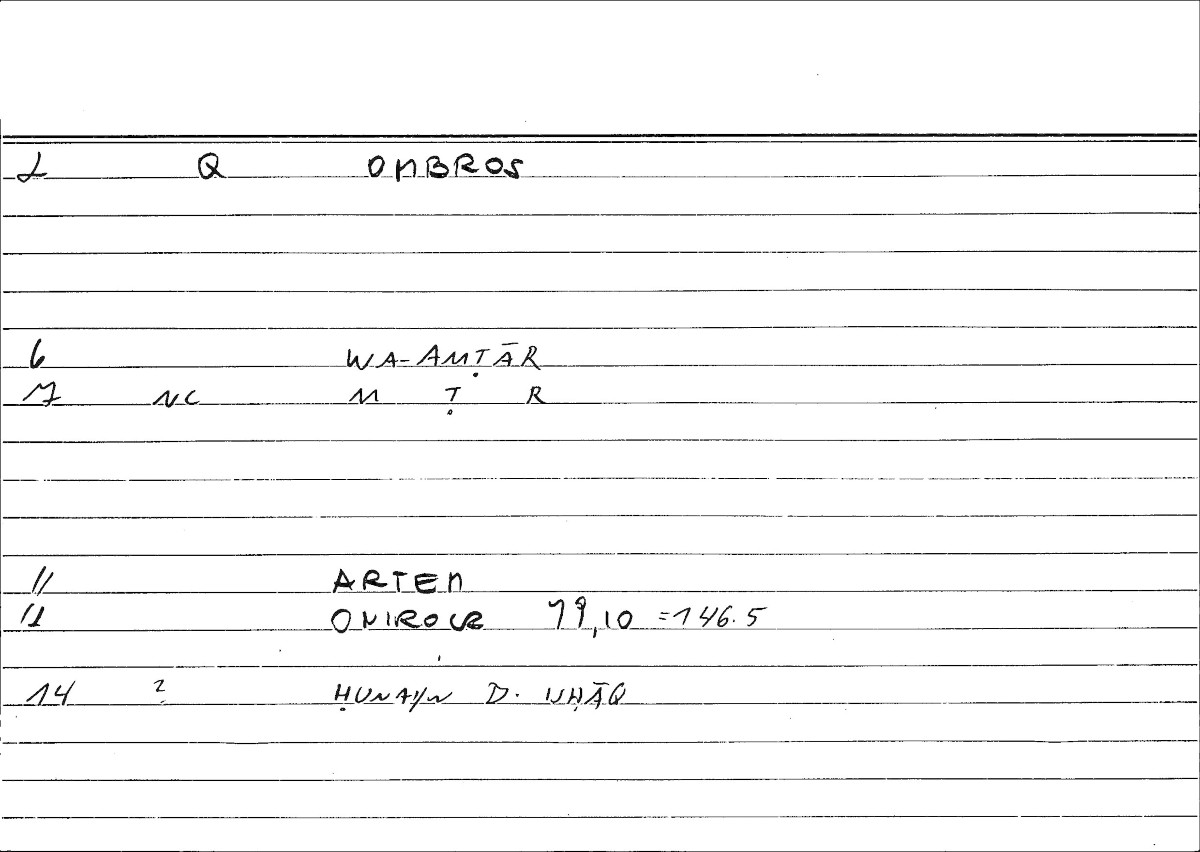 2 Q OMBROS
6 WA-AMṬĀR
7 NC M Ṭ R
11 ARTEM
12 ONIROCR 19,10 =146.5
14 ? ḤUNAYN B. ISḤĀQ